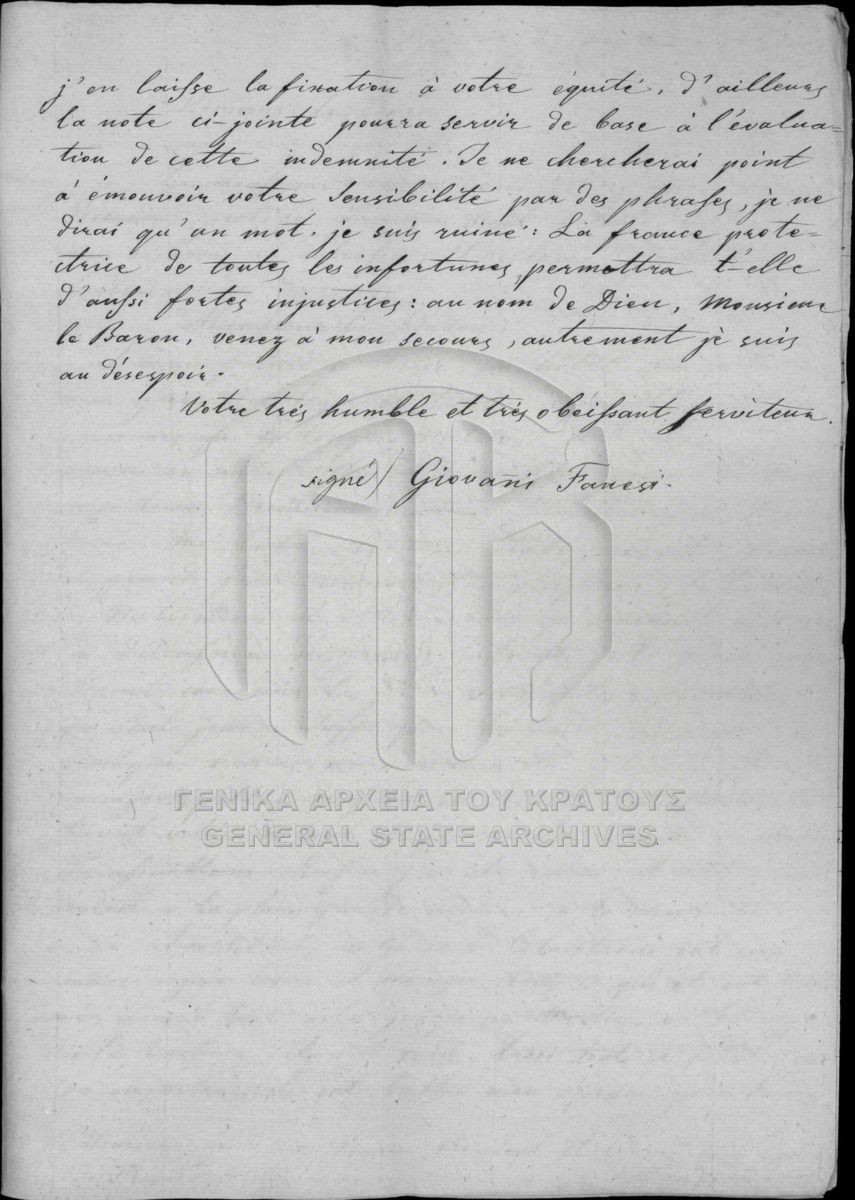 j'en laisse la fixation à votre équité, d'ailleurs
la note ci-jointe pourra servir de base à l'évalua=
tion de cette indemnité. Je ne chercherai point
à émouvoir votre sensibilité par des phrases, je ne
dirai qu'un mot. je suis ruiné: La france prote=
ctrice de toutes les infortunes, permettra t-elle
d'aussi fortes injustices: au nom de Dieu, Monsieur
le Baron, venez à mon secours, autrement je suis
au désespoir.
Votre trés humble et trés obéissant serviteur.
signé/ Giovani
ΓΕΝΙΚΑ ΑΡΧΕΙΑ ΤΟΥ ΚΡΑΤΟΥΣ
GENERAL STATE ARCHIVES